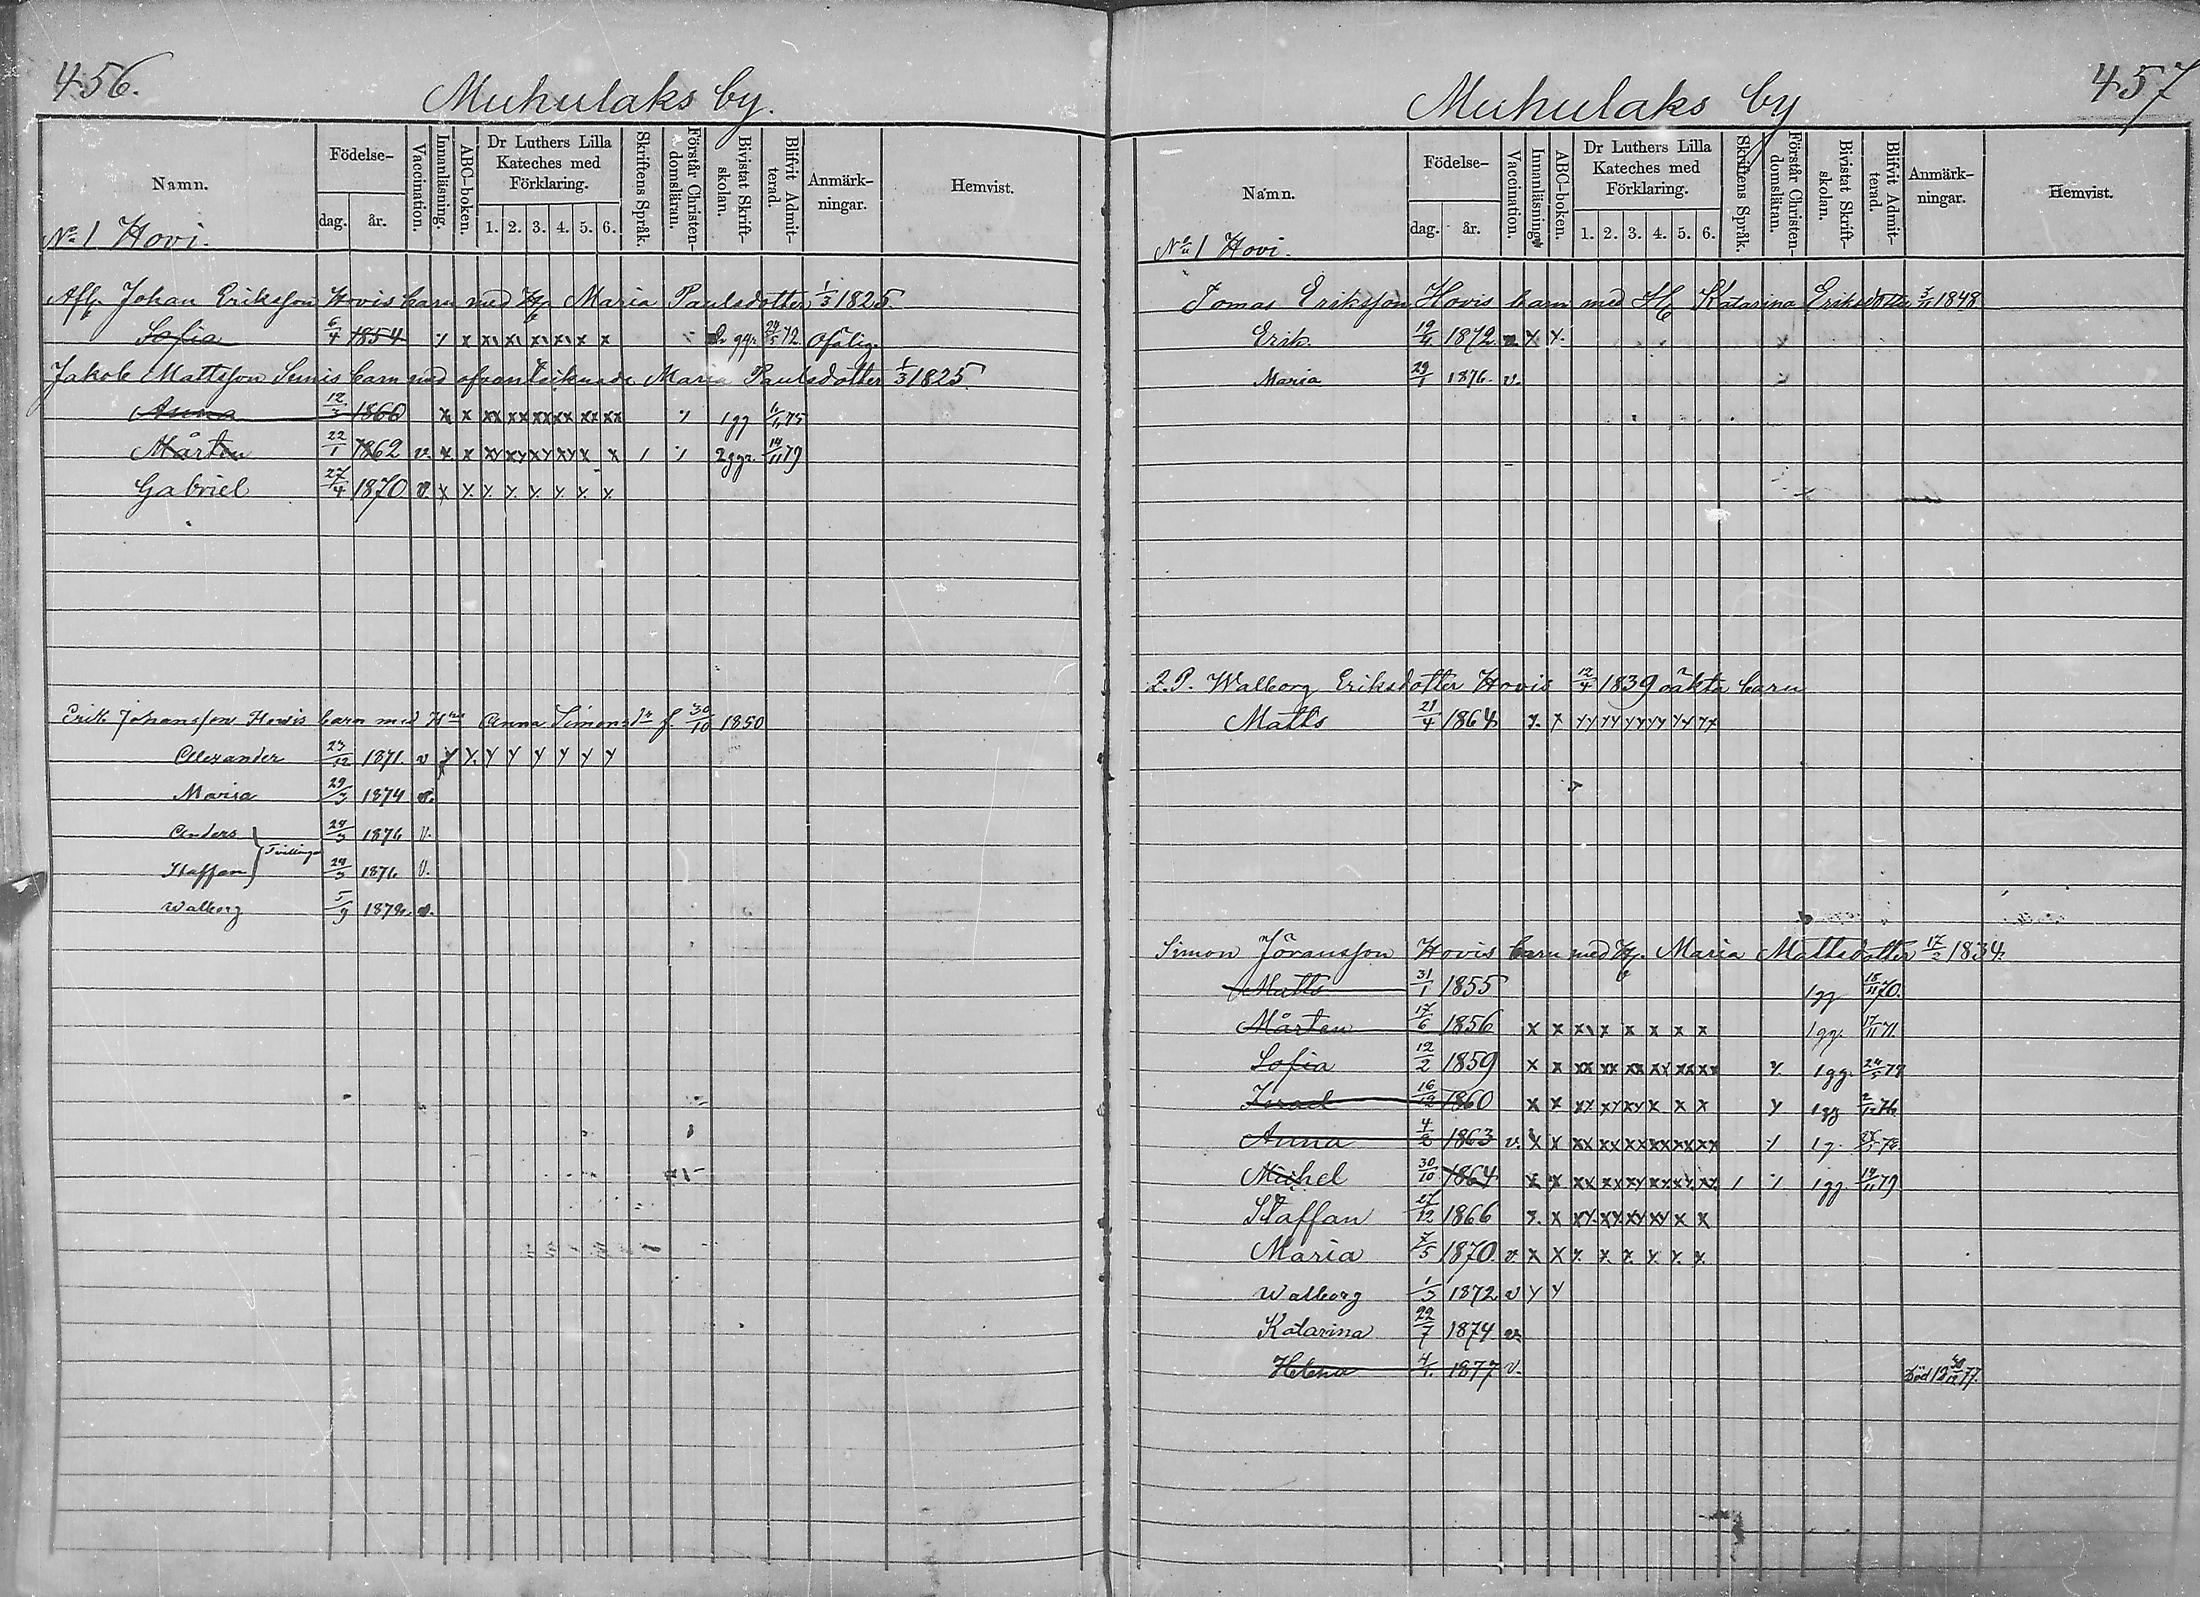 456.
Muhulaks by.
Namn.
Födelse-
dag.
år.
Vaccination.
Innanläsning.
ABC-boken.
Dr Luthers Lilla Kateches med Förklaring.
1. 2. 3. 4. 5. 6.
Skriftens Språk.
Förstår Christendomsläran.
Bivistat Skriftskolan.
Blifvit Admitterad.
Anmärkningar.
Hemvist.
No 1 Hovi.
Afl. Johan Eriksson Hovis barn med H. Maria Paulsdotter 1/3 1825.
Sofia 6/4 1854 x x x x x x x ggr. 72 ofälig.
Jakob Mattsson barn med Maria Paulsdotter 1/3 1825.
Anna 12/3 1860 x x xx xx xx xx xx xx 1 gg 75
Mårten 22/1 1862 v. x x xx xy xy xy x x / 2 ggr. 14/11 79
Gabriel 27/4 1870 v x x x x x x x x
Erik Johansson Hovis barn med Anna Simonsdr f. 30/10 1850
Alexander 23/12 1871. v y y. y y y y y y
Maria 29/3 1874 v.
Anders 24/3 1876 v.
Tvillingar
Staffan 24/3 1876 v.
Walborg 5/9 1878. v.
457
Muhulaks by
Namn.
Födelse-
dag.
år.
Vaccination.
Innanläsning.
ABC-boken.
Dr Luthers Lilla Kateches med Förklaring.
1. 2. 3. 4. 5. 6.
Skriftens Språk.
Förstår Christendomsläran.
Bivistat Skriftskolan.
Blifvit Admitterad.
Anmärkningar.
Hemvist.
No 1 Hovi.
Tomas Eriksson Hovis barn med H Katarina Eriksdotter 1848
Erik. 1872. v x x.
Maria 29/1 1876. v.
Q. P. Walborg Eriksdotter Hovis 12/4 1839 oäkta barn
Matts 21/4 1864 x. x yy yy yy yy yy yx
Simon Jöransson Hovis barn med H. Maria Mattsdotter 17/2 1834.
Matts 31/1 1855 1 gg 70.
Mårten 17/6 1856 x x x x x x x x 1 gg. 17/11 71.
Sofia 12/2 1859 x x xx xx xx xy xx xx x 1 gg.
Israel 16/12 1860 x x xx xy xy x x x y 1 gg 2/12 76
Anna 4/2 1863 v. x x xx xx xx xx xx xx 1 g.
Michel 30/10 1864 x x xx xx xy xx xx xx / 1 gg 14/11 79
Staffan 27/12 1866 x. x xy xy xy xy x x
Maria 7/5 1870. v. x x x. x. x. x. x. x.
Walborg 1/3 1872 v y y
Katarina 22/7 1874 v.
Helena 4/1. 1877 v. Död 77.